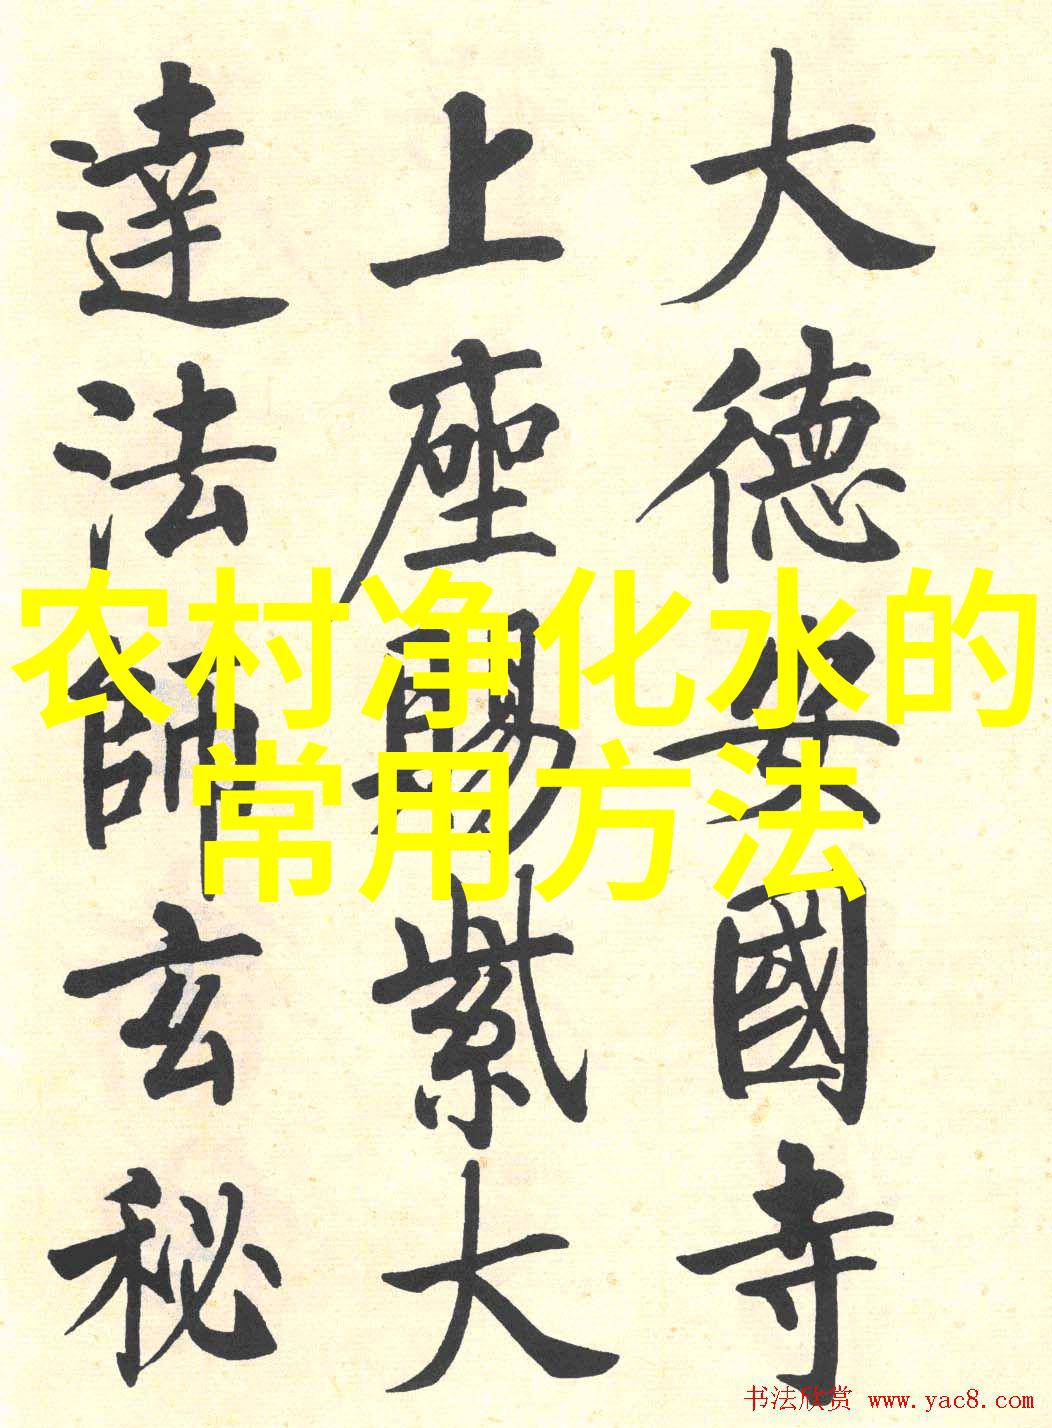 大德安國寺
上座賜紫大
達法師玄秘
农村净化水的
常用方法
书法欣赏 www.yac8.com